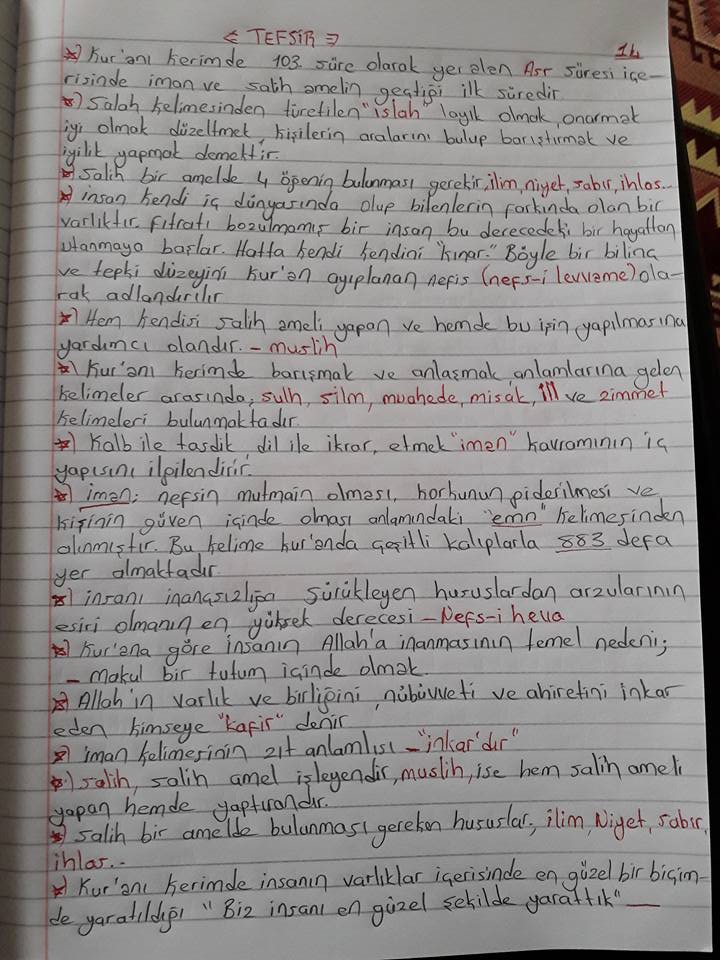 < TEFSİR =>
14
*) Kur'anı Kerimde 103 süre olarak yer alan Asr süresi içe-
risinde iman ve salih amelin geçtiği ilk süredir
*) Salah kelimesinden türetilen "islah" layık olmak, onarmak
iyi olmak düzeltmek, kişilerin aralarını bulup barıştırmak ve
iyilik yapmak demektir.
*) Salih bir amelde 4 öğenin bulunması gerekir, ilim, niyet, sabır, ihlas...
*) insan kendi iç dünyasında olup bitenlerin farkında olan bir
varlıktır. fıtratı bozulmamış bir insan bu derecedeki bir hayattan
utanmaya başlar. Hatta kendi kendini "kınar." Böyle bir bilinç
ve tepki düzeyini Kur'an ayıplanan nefis (nefs-i levvame) ola-
rak adlandırılır
*) Hem kendisi salih ameli yapan ve hemde bu işin yapılmasına
yardımcı olandır. - muslih
*) Kur'anı kerimde barışmak ve anlaşmak anlamlarına gelen
kelimeler arasında; sulh, silm, muahede, misak, ve zimmet
kelimeleri bulunmaktadır.
*) Kalb ile tasdik, dil ile ikrar, etmek "iman" kavramının iç
yapısını ilgilendirir.
*) iman; nefsin mutmain olması, korkunun giderilmesi ve
kişinin güven içinde olması anlamındaki "emn" kelimesinden
alınmıştır. Bu kelime kur'anda çeşitli kalıplarla 883 defa
yer almaktadır.
*) insanı inançsızlığa sürükleyen hususlardan arzularının
esiri olmanın en yüksek derecesi - Nefs-i heva
*) Kur'ana göre insanın Allah'a inanmasının temel nedeni;
- makul bir tutum içinde olmak.
*) Allah'ın varlık ve birliğini, nübüvveti ve ahireti inkar
eden kimseye "kafir" denir
*) iman kelimesinin zıt anlamlısı - "inkar'dır"
*) salih, salih amel işleyendir, muslih, ise hem salih ameli
yapan hemde yaptırandır.
*) Salih bir amelde bulunması gereken hususlar; ilim, Niyet, sabır,
ihlas..
*) Kur'anı kerimde insanın varlıklar içerisinde en güzel bir biçim-
de yaratıldığı " Biz insanı en güzel şekilde yarattık" __